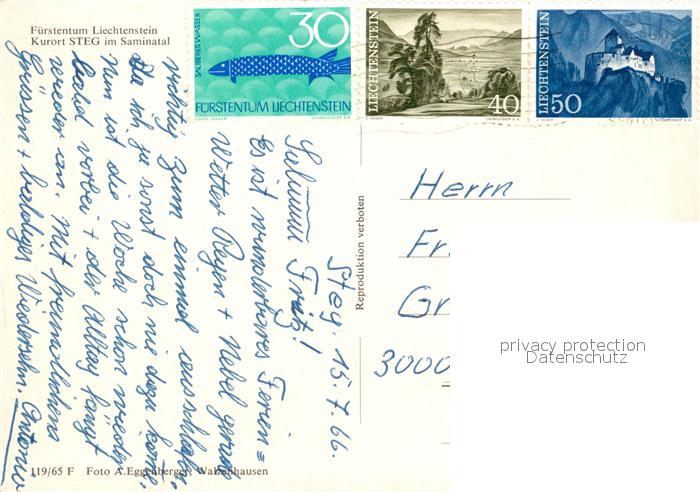 Fürstentum Liechtenstein
Kurort STEG im Saminatal
SAUBERES WASSER
30
FÜRSTENTUM LIECHTENSTEIN
LIECHTENSTEIN
40
LIECHTENSTEIN
50
Steg, 15.7.66
Fritz!
Es ist wunderbares Ferien=
Wetter Regen + Nebel gerade
richtig zum einmal ausschlafen,
da ich ja sonst doch nie dazu komme.
Nun ist die Woche schon wieder
bald vorbei + der Alltag fängt
wieder an. Mit freundlichen
Grüssen + baldiges Wiedersehn. Antonio
Reproduktion verboten
Herrn
Fr
Gr
3000
privacy protection
Datenschutz
119/65 F Foto A.Eggenberger, Walzenhausen